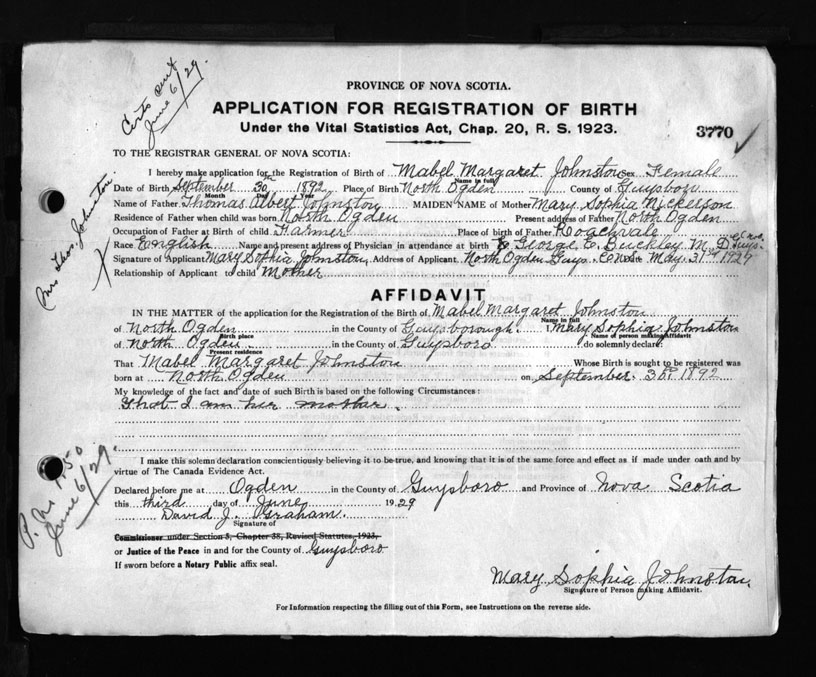 Certs sent
June 6/29.
PROVINCE OF NOVA SCOTIA.
APPLICATION FOR REGISTRATION OF BIRTH
Under the Vital Statistics Act, Chap. 20, R. S. 1923.
3770
TO THE REGISTRAR GENERAL OF NOVA SCOTIA:
I hereby make application for the Registration of Birth of Mabel Margaret Johnston Sex Female
Name in full
Date of Birth September 30th 1892 Place of Birth North Ogden County of Guysboro
Month Day Year
Name of Father Thomas Albert Johnston MAIDEN NAME of Mother Mary Sophia Nickerson
Residence of Father when child was born North Ogden Present address of Father North Ogden
Occupation of Father at Birth of child Farmer Place of birth of Father Roachvale
Race English Name and present address of Physician in attendance at birth George E. Buckley M.D. Guys.
Signature of Applicant Mary Sophia Johnston, Address of Applicant North Ogden Guys. Co N.S. Date May 31st 1929
Relationship of Applicant to child Mother
Mrs Thos. Johnston.
X
AFFIDAVIT
IN THE MATTER of the application for the Registration of the Birth of Mabel Margaret Johnston
Name in full
of North Ogden in the County of Guysborough I, Mary Sophia Johnston
Birth place Name of person making Affidavit
of North Ogden in the County of Guysboro do solemnly declare:
Present residence
That Mabel Margaret Johnston Whose Birth is sought to be registered was
born at North Ogden on September. 30th 1892
My knowledge of the fact and date of such Birth is based on the following Circumstances:
That I am her mother.
I make this solemn declaration conscientiously believing it to be true, and knowing that it is of the same force and effect as if made under oath and by
virtue of The Canada Evidence Act.
P. N. 1.50
June 6/29.
Declared before me at Ogden in the County of Guysboro and Province of Nova Scotia
this third day of June 1929
David J. Graham.
Signature of
Commissioner under Section 3, Chapter 38, Revised Statutes, 1923,
or Justice of the Peace in and for the County of Guysboro
If sworn before a Notary Public affix seal.
Mary Sophia Johnston,
Signature of Person making Affidavit.
For Information respecting the filling out of this Form, see Instructions on the reverse side.